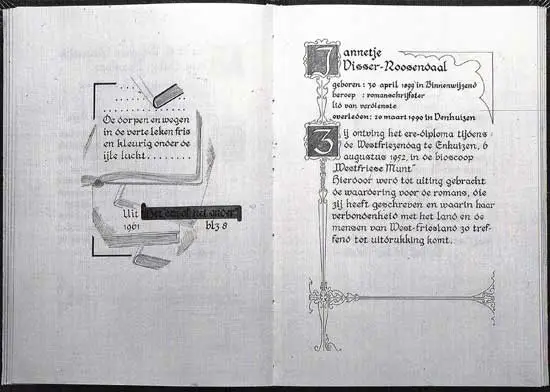 De dorpen en wegen
in de verte leken fris
en kleurig onder de
ijle lucht........
Uit "Het een of het ander"
1961 blz 8
Jannetje
Visser-Roosendaal
geboren: 30 april 1899 in Binnenwijzend
beroep: romanschrijfster
lid van verdienste
overleden: 20 maart 1990 in Venhuizen
Zij ontving het ere-diploma tijdens
de Westfriezendag te Enkhuizen, 6
augustus 1952, in de bioscoop
"Westfriese Munt"
Hierdoor werd tot uiting gebracht
de waardering voor de romans, die
zij heeft geschreven en waarin haar
verbondenheid met het land en de
mensen van West-friesland zo tref-
fend tot uitdrukking komt.